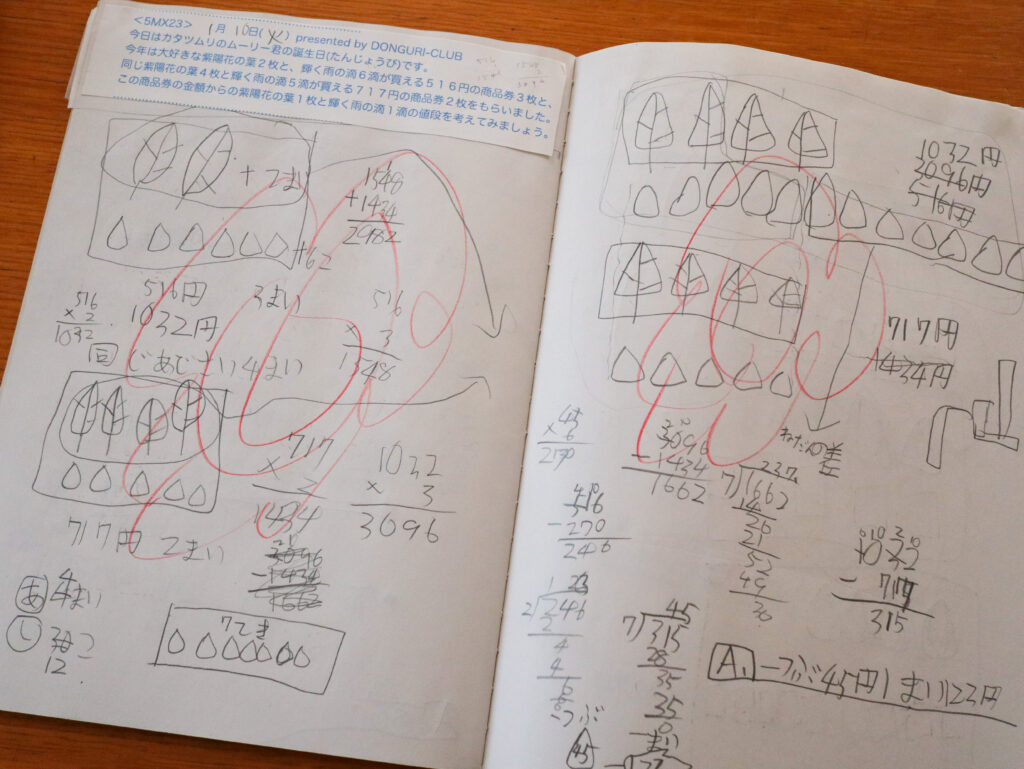 <5MX23> 1月10日(火) presented by DONGURI-CLUB
今日はカタツムリのムーリー君の誕生日(たんじょうび)です。
今年は大好きな紫陽花の葉2枚と、輝く雨の滴6滴が買える516円の商品券3枚と、
同じ紫陽花の葉4枚と輝く雨の滴5滴が買える717円の商品券2枚をもらいました。
この商品券の金額からの紫陽花の葉1枚と輝く雨の滴1滴の値段を考えてみましょう。
+2まい
+6こ
1548
+1434
2982
516円 3まい
516
×2
1032
1032円
516
×3
1548
回じあじさい4まい
717
×2
1434
1032
×3
3096
717円 2まい
-1434
1662
あ4まい
し
12こ
7てき
1032円
3096円
516円
717円
1434円
ねだんの差
45
×6
270
3096
-1434
1662
237
7)1662
14
26
21
52
49
30
516
-270
246
123
2)246
2
4
4
6
6
一つぶ
45
45
7)315
28
35
35
0
1032
-717
315
A. 一つぶ45円1まい123円